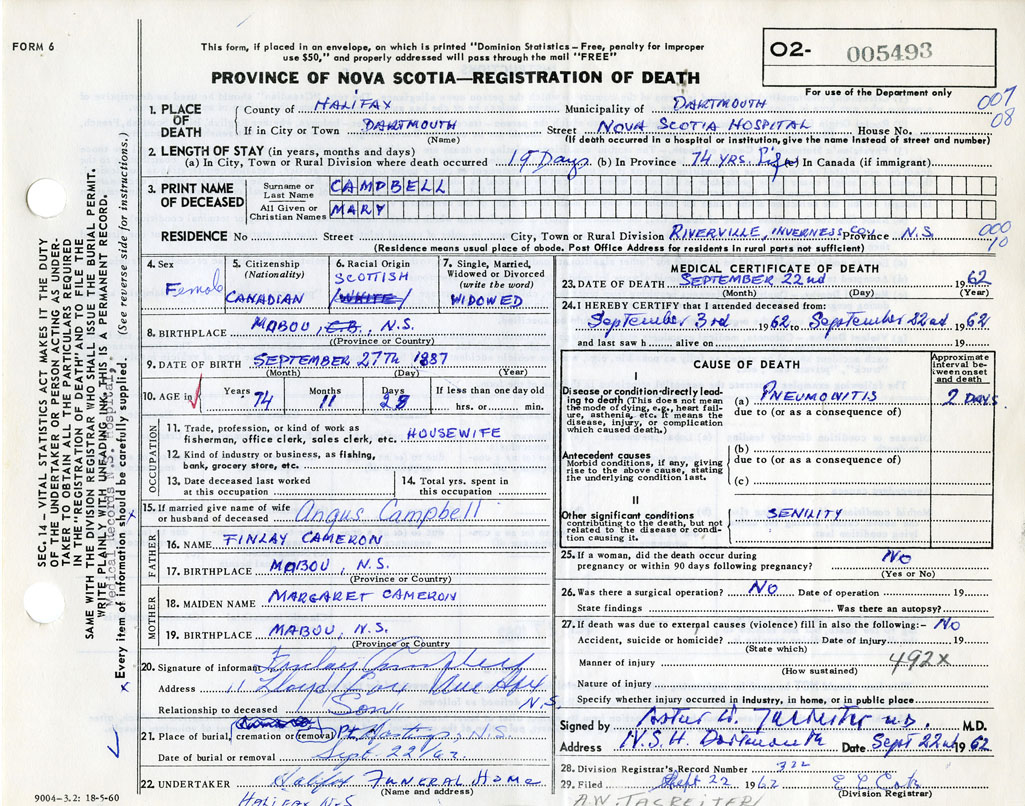 FORM 6
This form, if placed in an envelope, on which is printed "Dominion Statistics – Free, penalty for improper
use $50," and properly addressed will pass through the mail "FREE"
PROVINCE OF NOVA SCOTIA—REGISTRATION OF DEATH
O2- 005493
For use of the Department only
007
08
1. PLACE OF DEATH
County of HALIFAX Municipality of DARTMOUTH
If in City or Town DARTMOUTH Street NOVA SCOTIA HOSPITAL House No.
(Name) (If death occurred in a hospital or institution, give the name instead of street and number)
2. LENGTH OF STAY (in years, months and days)
(a) In City, Town or Rural Division where death occurred 19 Days (b) In Province 74 YRS. (Life) in Canada (if immigrant)
3. PRINT NAME OF DECEASED
Surname or Last Name CAMPBELL
All Given or Christian Names MARY
RESIDENCE No. Street City, Town or Rural Division RIVERVILLE, INVERNESS COY Province N.S.
(Residence means usual place of abode. Post Office Address for residents in rural parts not sufficient)
000
10
4. Sex Female
5. Citizenship (Nationality) CANADIAN
6. Racial Origin SCOTTISH (WHITE)
7. Single, Married, Widowed or Divorced (write the word) WIDOWED
8. BIRTHPLACE MABOU, C.B., N.S.
(Province or Country)
9. DATE OF BIRTH SEPTEMBER 27TH 1887
(Month) (Day) (Year)
10. AGE in Years 74 Months 11 Days 28 If less than one day old hrs. or min.
OCCUPATION
11. Trade, profession, or kind of work as fisherman, office clerk, sales clerk, etc. HOUSEWIFE
12. Kind of industry or business, as fishing, bank, grocery store, etc.
13. Date deceased last worked at this occupation
14. Total yrs. spent in this occupation
15. If married give name of wife or husband of deceased Angus Campbell
FATHER
16. NAME FINLAY CAMERON
17. BIRTHPLACE MABOU, N.S.
(Province or Country)
MOTHER
18. MAIDEN NAME MARGARET CAMERON
19. BIRTHPLACE MABOU, N.S.
(Province or Country)
20. Signature of informant Finlay Campbell
Address 11 Lloyd Hfx N.S.
Relationship to deceased Son
21. Place of burial, cremation or removal Pt. Hastings, N.S.
Date of burial or removal Sept 22/62
22. UNDERTAKER Halifax FUNERAL HOME
(Name and address)
HALIFAX N.S
9004-3.2: 18-5-60
MEDICAL CERTIFICATE OF DEATH
23. DATE OF DEATH SEPTEMBER 22nd 1962
(Month) (Day) (Year)
24. I HEREBY CERTIFY that I attended deceased from:
September 3rd 1962 to September 22nd 1962
and last saw h alive on 19
CAUSE OF DEATH
Approximate interval between onset and death
I
Disease or condition directly leading to death (This does not mean the mode of dying, e.g., heart failure, asthenia, etc. It means the disease, injury, or complication which caused death.)
(a) PNEUMONITIS 2 DAYS
due to (or as a consequence of)
Antecedent causes
Morbid conditions, if any, giving rise to the above cause, stating the underlying condition last.
(b)
due to (or as a consequence of)
(c)
II
Other significant conditions contributing to the death, but not related to the disease or condition causing it.
SENILITY
25. If a woman, did the death occur during pregnancy or within 90 days following pregnancy? No
(Yes or No)
26. Was there a surgical operation? No Date of operation 19
State findings Was there an autopsy?
27. If death was due to external causes (violence) fill in also the following:- No
Accident, suicide or homicide? Date of injury 19
(State which)
Manner of injury 492x
(How sustained)
Nature of injury
Specify whether injury occurred in industry, in home, or in public place
Signed by M.D. M.D.
Address N.S.H. Dartmouth Date Sept 22nd 1962
28. Division Registrar's Record Number 732
29. Filed Sept 22 1962
(Division Registrar)
SEC. 14 – VITAL STATISTICS ACT MAKES IT THE DUTY
OF THE UNDERTAKER OR PERSON ACTING AS UNDER-
TAKER TO OBTAIN ALL THE PARTICULARS REQUIRED
IN THE "REGISTRATION OF DEATH" AND TO FILE THE
SAME WITH THE DIVISION REGISTRAR WHO SHALL ISSUE THE BURIAL PERMIT.
WRITE PLAINLY WITH UNFADING INK. THIS IS A PERMANENT RECORD.
Medical Records N.S. Hospital,
Every item of information should be carefully supplied. (See reverse side for instructions.)